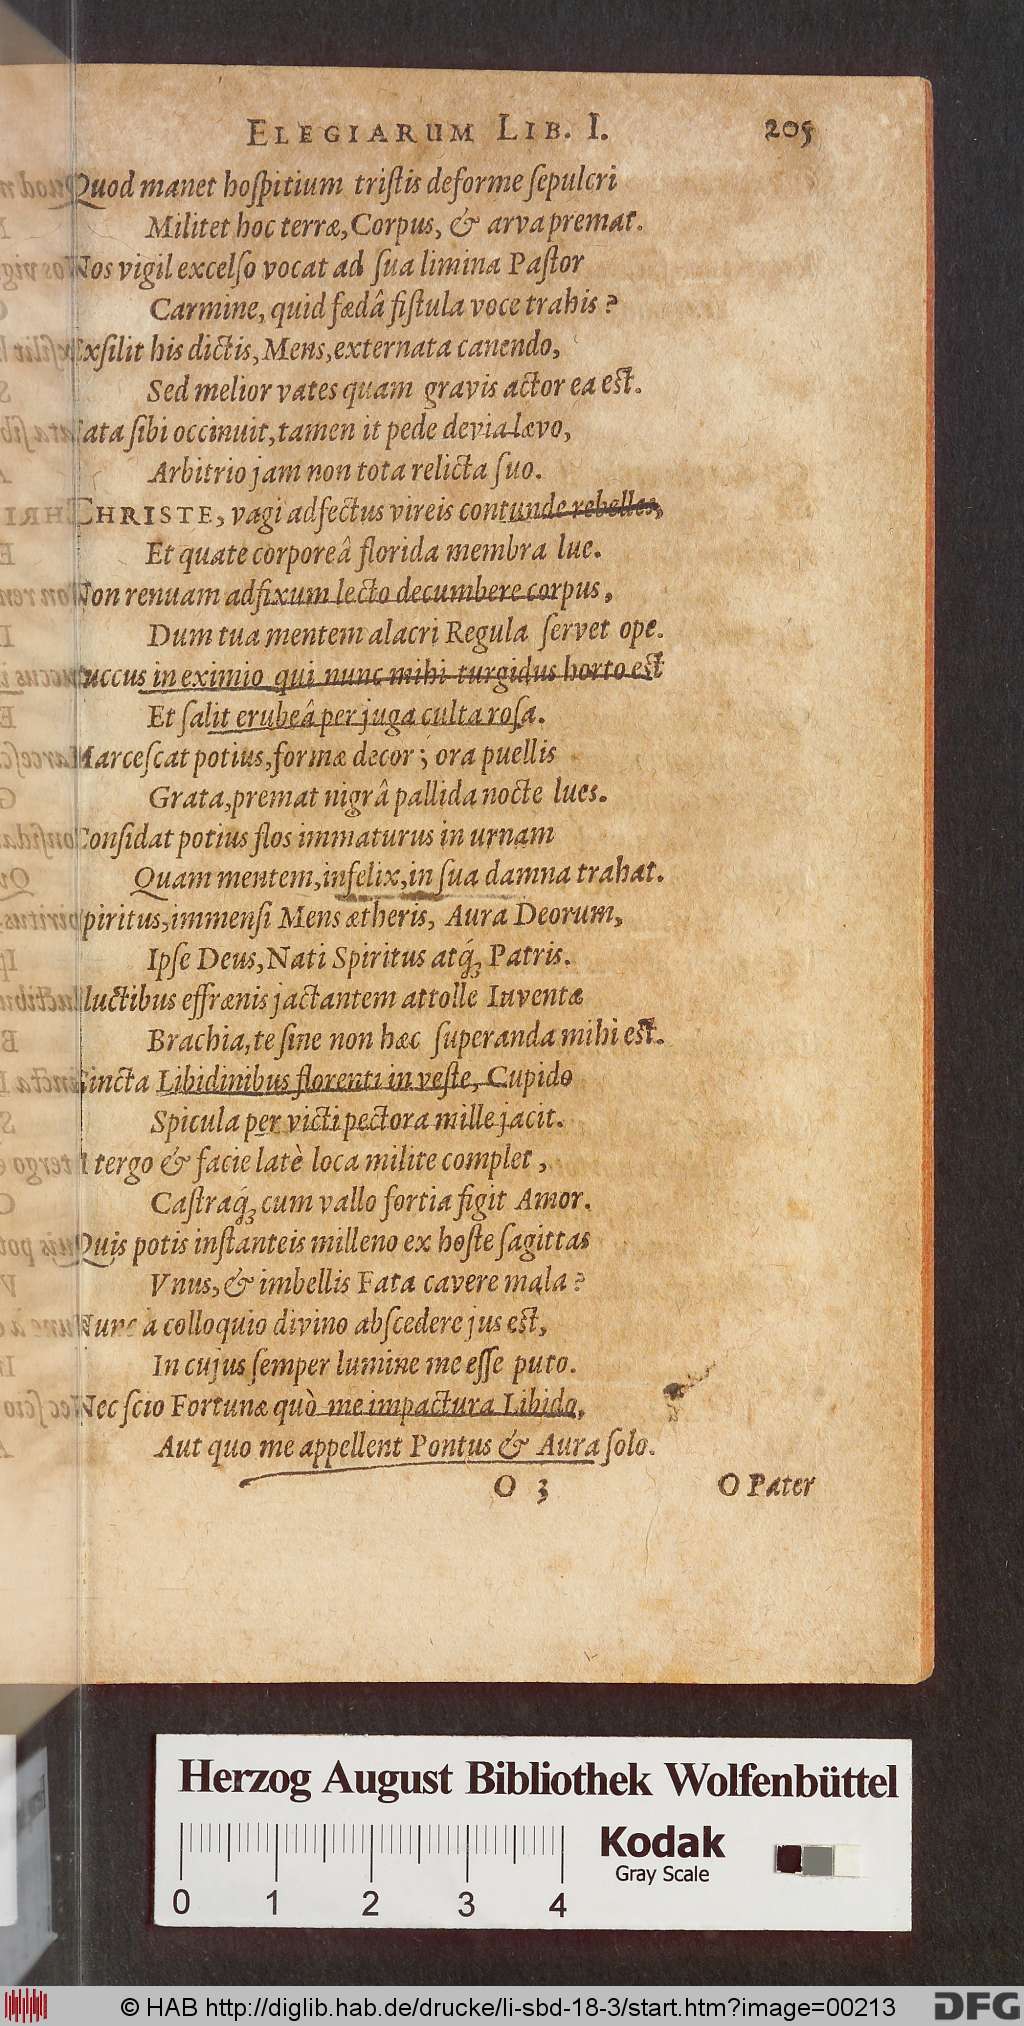 ELEGIARUM LIB. I. 205
Quod manet hoſpitium triſtis deforme ſepulcri
Militet hoc terræ, Corpus, & arva premat.
Nos vigil excelſo vocat ad ſua limina Paſtor
Carmine, quid fædâ fiſtula voce trahis?
Exſilit his dictis, Mens, externata canendo,
Sed melior vates quam gravis actor ea eſt.
Fata ſibi occinuit, tamen it pede devia lævo,
Arbitrio jam non tota relicta ſuo.
CHRISTE, vagi adfectus vireis contunde rebelles,
Et quate corporeâ florida membra lue.
Non renuam adfixum lecto decumbere corpus,
Dum tua mentem alacri Regula ſervet ope.
ſuccus in eximio qui nunc mihi turgidus horto eſt
Et ſalit erubeâ per juga culta roſa.
Marceſcat potius, formæ decor; ora puellis
Grata, premat nigrâ pallida nocte lues.
Conſidat potius flos immaturus in urnam
Quam mentem, infelix, in ſua damna trahat.
Spiritus, immenſi Mens ætheris, Aura Deorum,
Ipſe Deus, Nati Spiritus atq́ꝫ Patris.
luctibus effrænis jactantem attolle Iuventæ
Brachia, te ſine non hæc ſuperanda mihi eſt.
Cincta Libidinibus florenti in veſte, Cupido
Spicula per victi pectora mille jacit.
A tergo & facie latè loca milite complet,
Caſtraq́ꝫ cum vallo fortia figit Amor.
Quis potis inſtanteis milleno ex hoſte ſagittas
Vnus, & imbellis Fata cavere mala?
Nunc à colloquio divino abſcedere jus eſt,
In cujus ſemper lumine me eſſe puto.
Nec ſcio Fortunæ quò me impactura Libido,
Aut quo me appellent Pontus & Aura ſolo.
O 3 O Pater
Herzog August Bibliothek Wolfenbüttel
Kodak
Gray Scale
0 1 2 3 4
© HAB http://diglib.hab.de/drucke/li-sbd-18-3/start.htm?image=00213
DFG